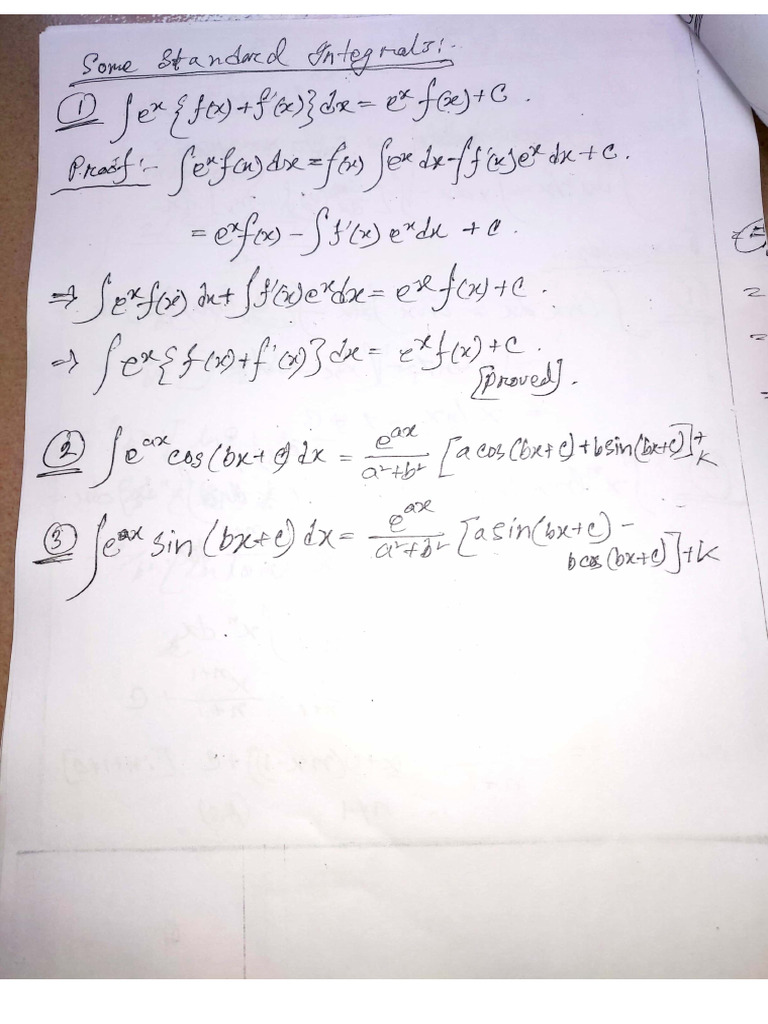 Some Standard Integrals:-
① ∫e^x {f(x)+f'(x)}dx = e^x f(x)+C.
Proof:- ∫e^x f(x) dx = f(x) ∫e^x dx - ∫f'(x)e^x dx + C.
= e^x f(x) - ∫ f'(x) e^x dx + C.
⇒ ∫e^x f(x) dx + ∫f'(x)e^x dx = e^x f(x) + C.
⇒ ∫e^x {f(x)+f'(x)}dx = e^x f(x) + C.
[Proved].
② ∫e^ax cos(bx+c) dx = e^ax/(a²+b²) [a cos(bx+c) + b sin(bx+c)] + K
③ ∫e^ax sin(bx+c) dx = e^ax/(a²+b²) [a sin(bx+c) -
b cos(bx+c)] + K